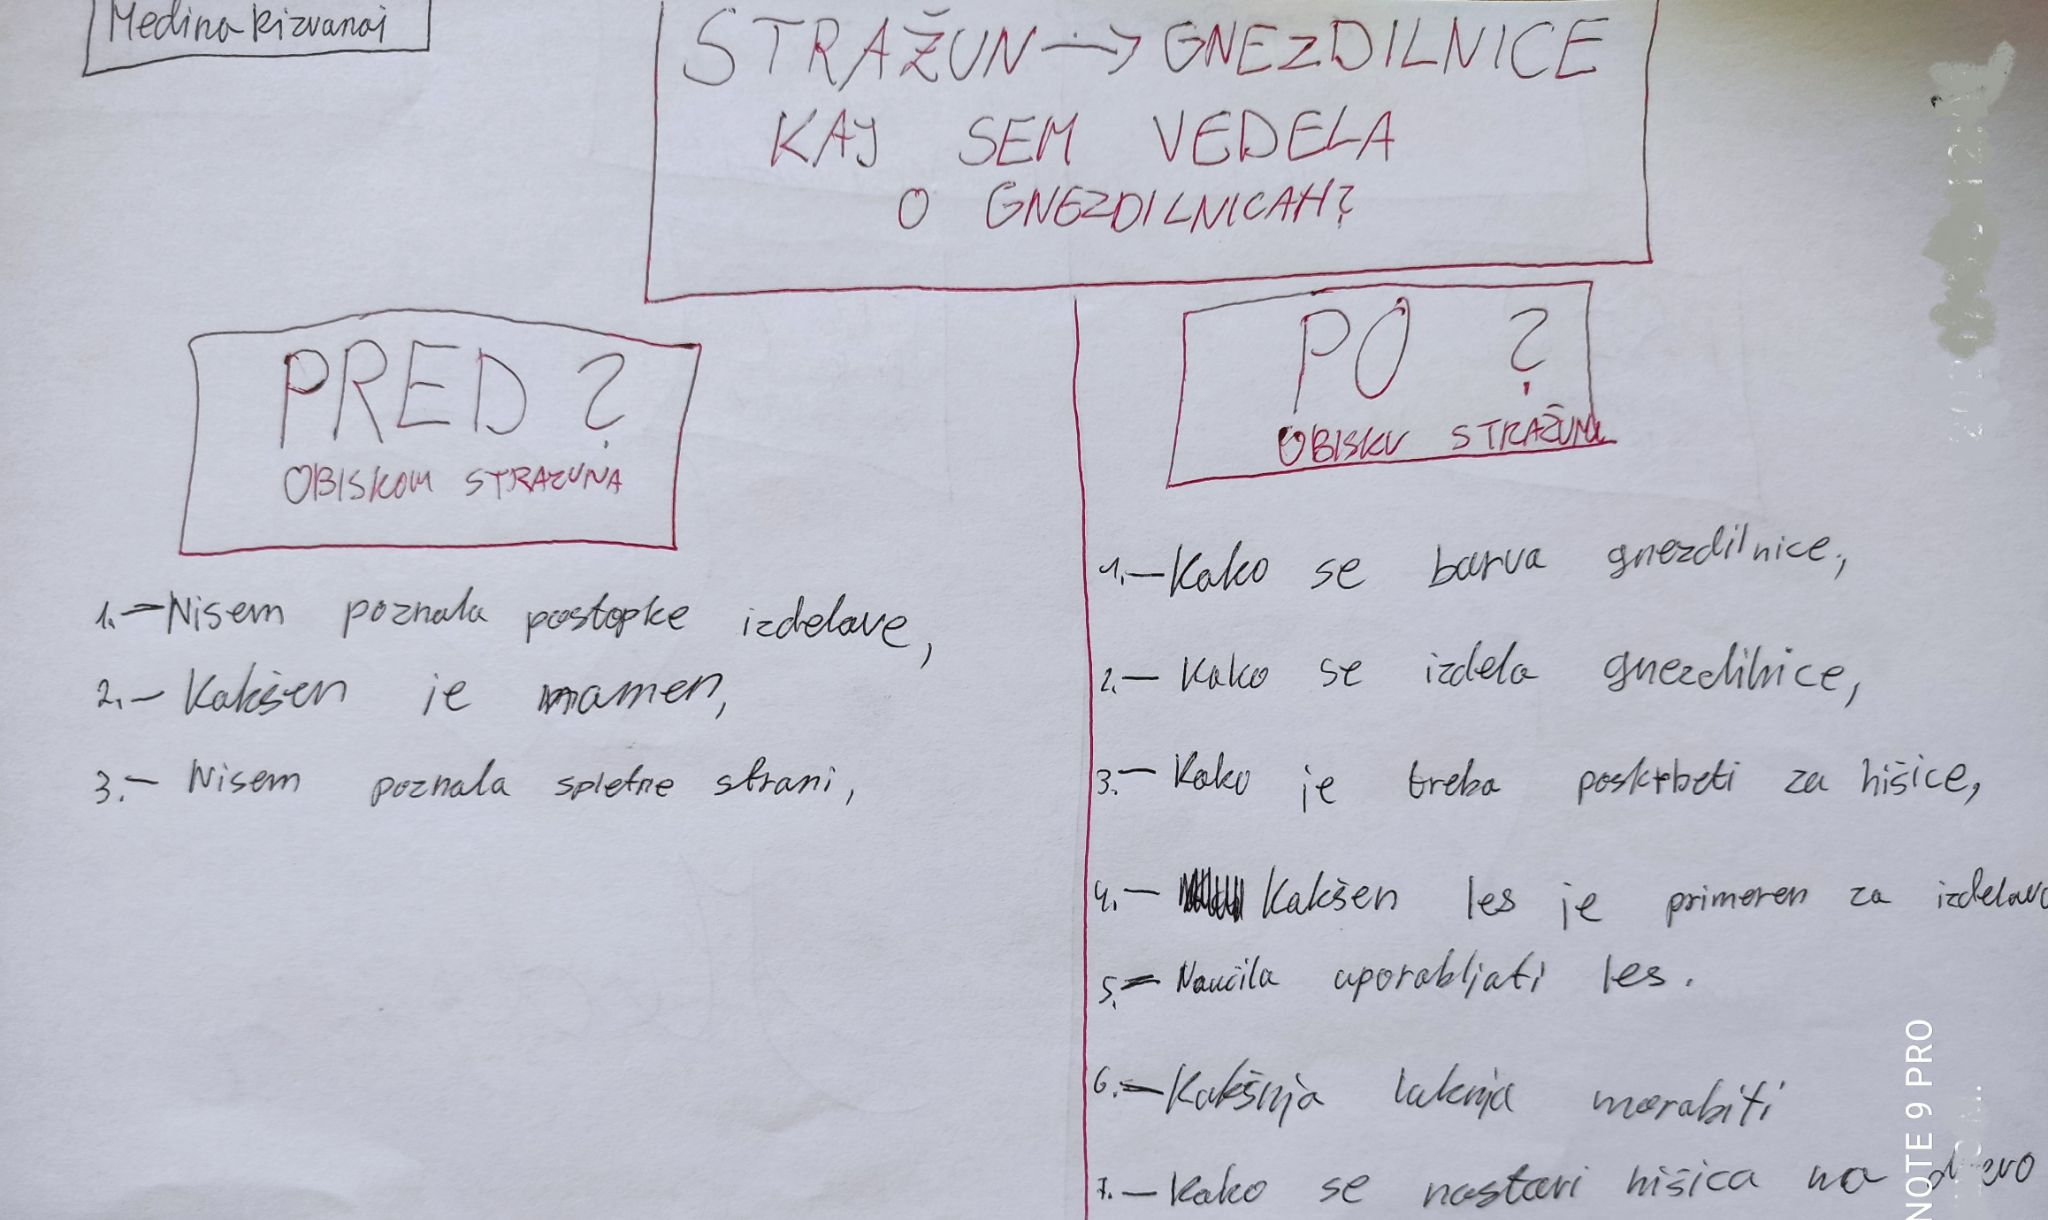 Medina Rizvanaj
STRAŽUN → GNEZDILNICE
KAJ SEM VEDELA
O GNEZDILNICAH?
PRED?
OBISKOM STRAZUNA
1.- Nisem poznala postopke izdelave,
2.- Kakšen je namen,
3.- Nisem poznala spletne strani,
PO ?
OBISKU STRAŽUNA
1.- Kako se barva gnezdilnice,
2.- Kako se izdela gnezdilnice,
3.- Kako je treba poskrbeti za hišice,
4.- Kakšen les je primeren za izdelavo
5.- Naučila uporabljati les.
6.- Kakšnja luknja morabiti
7.- Kako se nastavi hišica na
NOTE 9 PRO